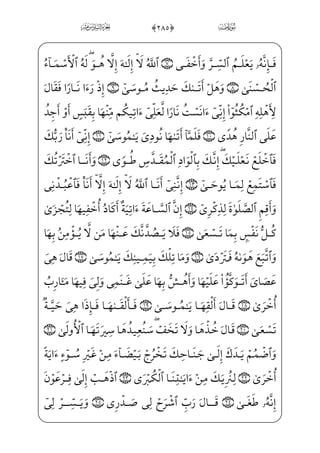 ﴿٢٨٥﴾
فَإِنَّهُۥ يَعۡلَمُ ٱلسِّرَّ وَأَخۡفَى ٱللَّهُ لَآ إِلَٰهَ إِلَّا هُوَۖ لَهُ ٱلۡأَسۡمَآءُ
ٱلۡحُسۡنَىٰ وَهَلۡ أَتَىٰكَ حَدِيثُ مُوسَىٰٓ إِذۡ رَءَا نَارٗا فَقَالَ
لِأَهۡلِهِ ٱمۡكُثُوٓاْ إِنِّيٓ ءَانَسۡتُ نَارٗا لَّعَلِّيٓ ءَاتِيكُم مِّنۡهَا بِقَبَسٍ أَوۡ أَجِدُ
عَلَى ٱلنَّارِ هُدٗى فَلَمَّآ أَتَىٰهَا نُودِيَ يَٰمُوسَىٰٓ إِنِّيٓ أَنَا۠ رَبُّكَ
فَٱخۡلَعۡ نَعۡلَيۡكَ إِنَّكَ بِٱلۡوَادِ ٱلۡمُقَدَّسِ طُوٗى وَأَنَا ٱخۡتَرۡتُكَ
فَٱسۡتَمِعۡ لِمَا يُوحَىٰٓ إِنَّنِيٓ أَنَا ٱللَّهُ لَآ إِلَٰهَ إِلَّآ أَنَا۠ فَٱعۡبُدۡنِي
وَأَقِمِ ٱلصَّلَوٰةَ لِذِكۡرِيٓ إِنَّ ٱلسَّاعَةَ ءَاتِيَةٌ أَكَادُ أُخۡفِيهَا لِتُجۡزَىٰ
كُلُّ نَفۡسِۭ بِمَا تَسۡعَىٰ فَلَا يَصُدَّنَّكَ عَنۡهَا مَن لَّا يُؤۡمِنُ بِهَا
وَٱتَّبَعَ هَوَىٰهُ فَتَرۡدَىٰ وَمَا تِلۡكَ بِيَمِينِكَ يَٰمُوسَىٰ قَالَ هِيَ
عَصَايَ أَتَوَكَّؤُاْ عَلَيۡهَا وَأَهُشُّ بِهَا عَلَىٰ غَنَمِي وَلِيَ فِيهَا مَـَٔارِبُ
أُخۡرَىٰ قَالَ أَلۡقِهَا يَٰمُوسَىٰ فَأَلۡقَىٰهَا فَإِذَا هِيَ حَيَّةٞ
تَسۡعَىٰ قَالَ خُذۡهَا وَلَا تَخَفۡۖ سَنُعِيدُهَا سِيرَتَهَا ٱلۡأُولَىٰ
وَٱضۡمُمۡ يَدَكَ إِلَىٰ جَنَاحِكَ تَخۡرُجۡ بَيۡضَآءَ مِنۡ غَيۡرِ سُوٓءٍ ءَايَةً
أُخۡرَىٰ لِنُرِيَكَ مِنۡ ءَايَٰتِنَا ٱلۡكُبۡرَى ٱذۡهَبۡ إِلَىٰ فِرۡعَوۡنَ
إِنَّهُۥ طَغَىٰ قَالَ رَبِّ ٱشۡرَحۡ لِي صَدۡرِي وَيَسِّرۡ لِيٓ